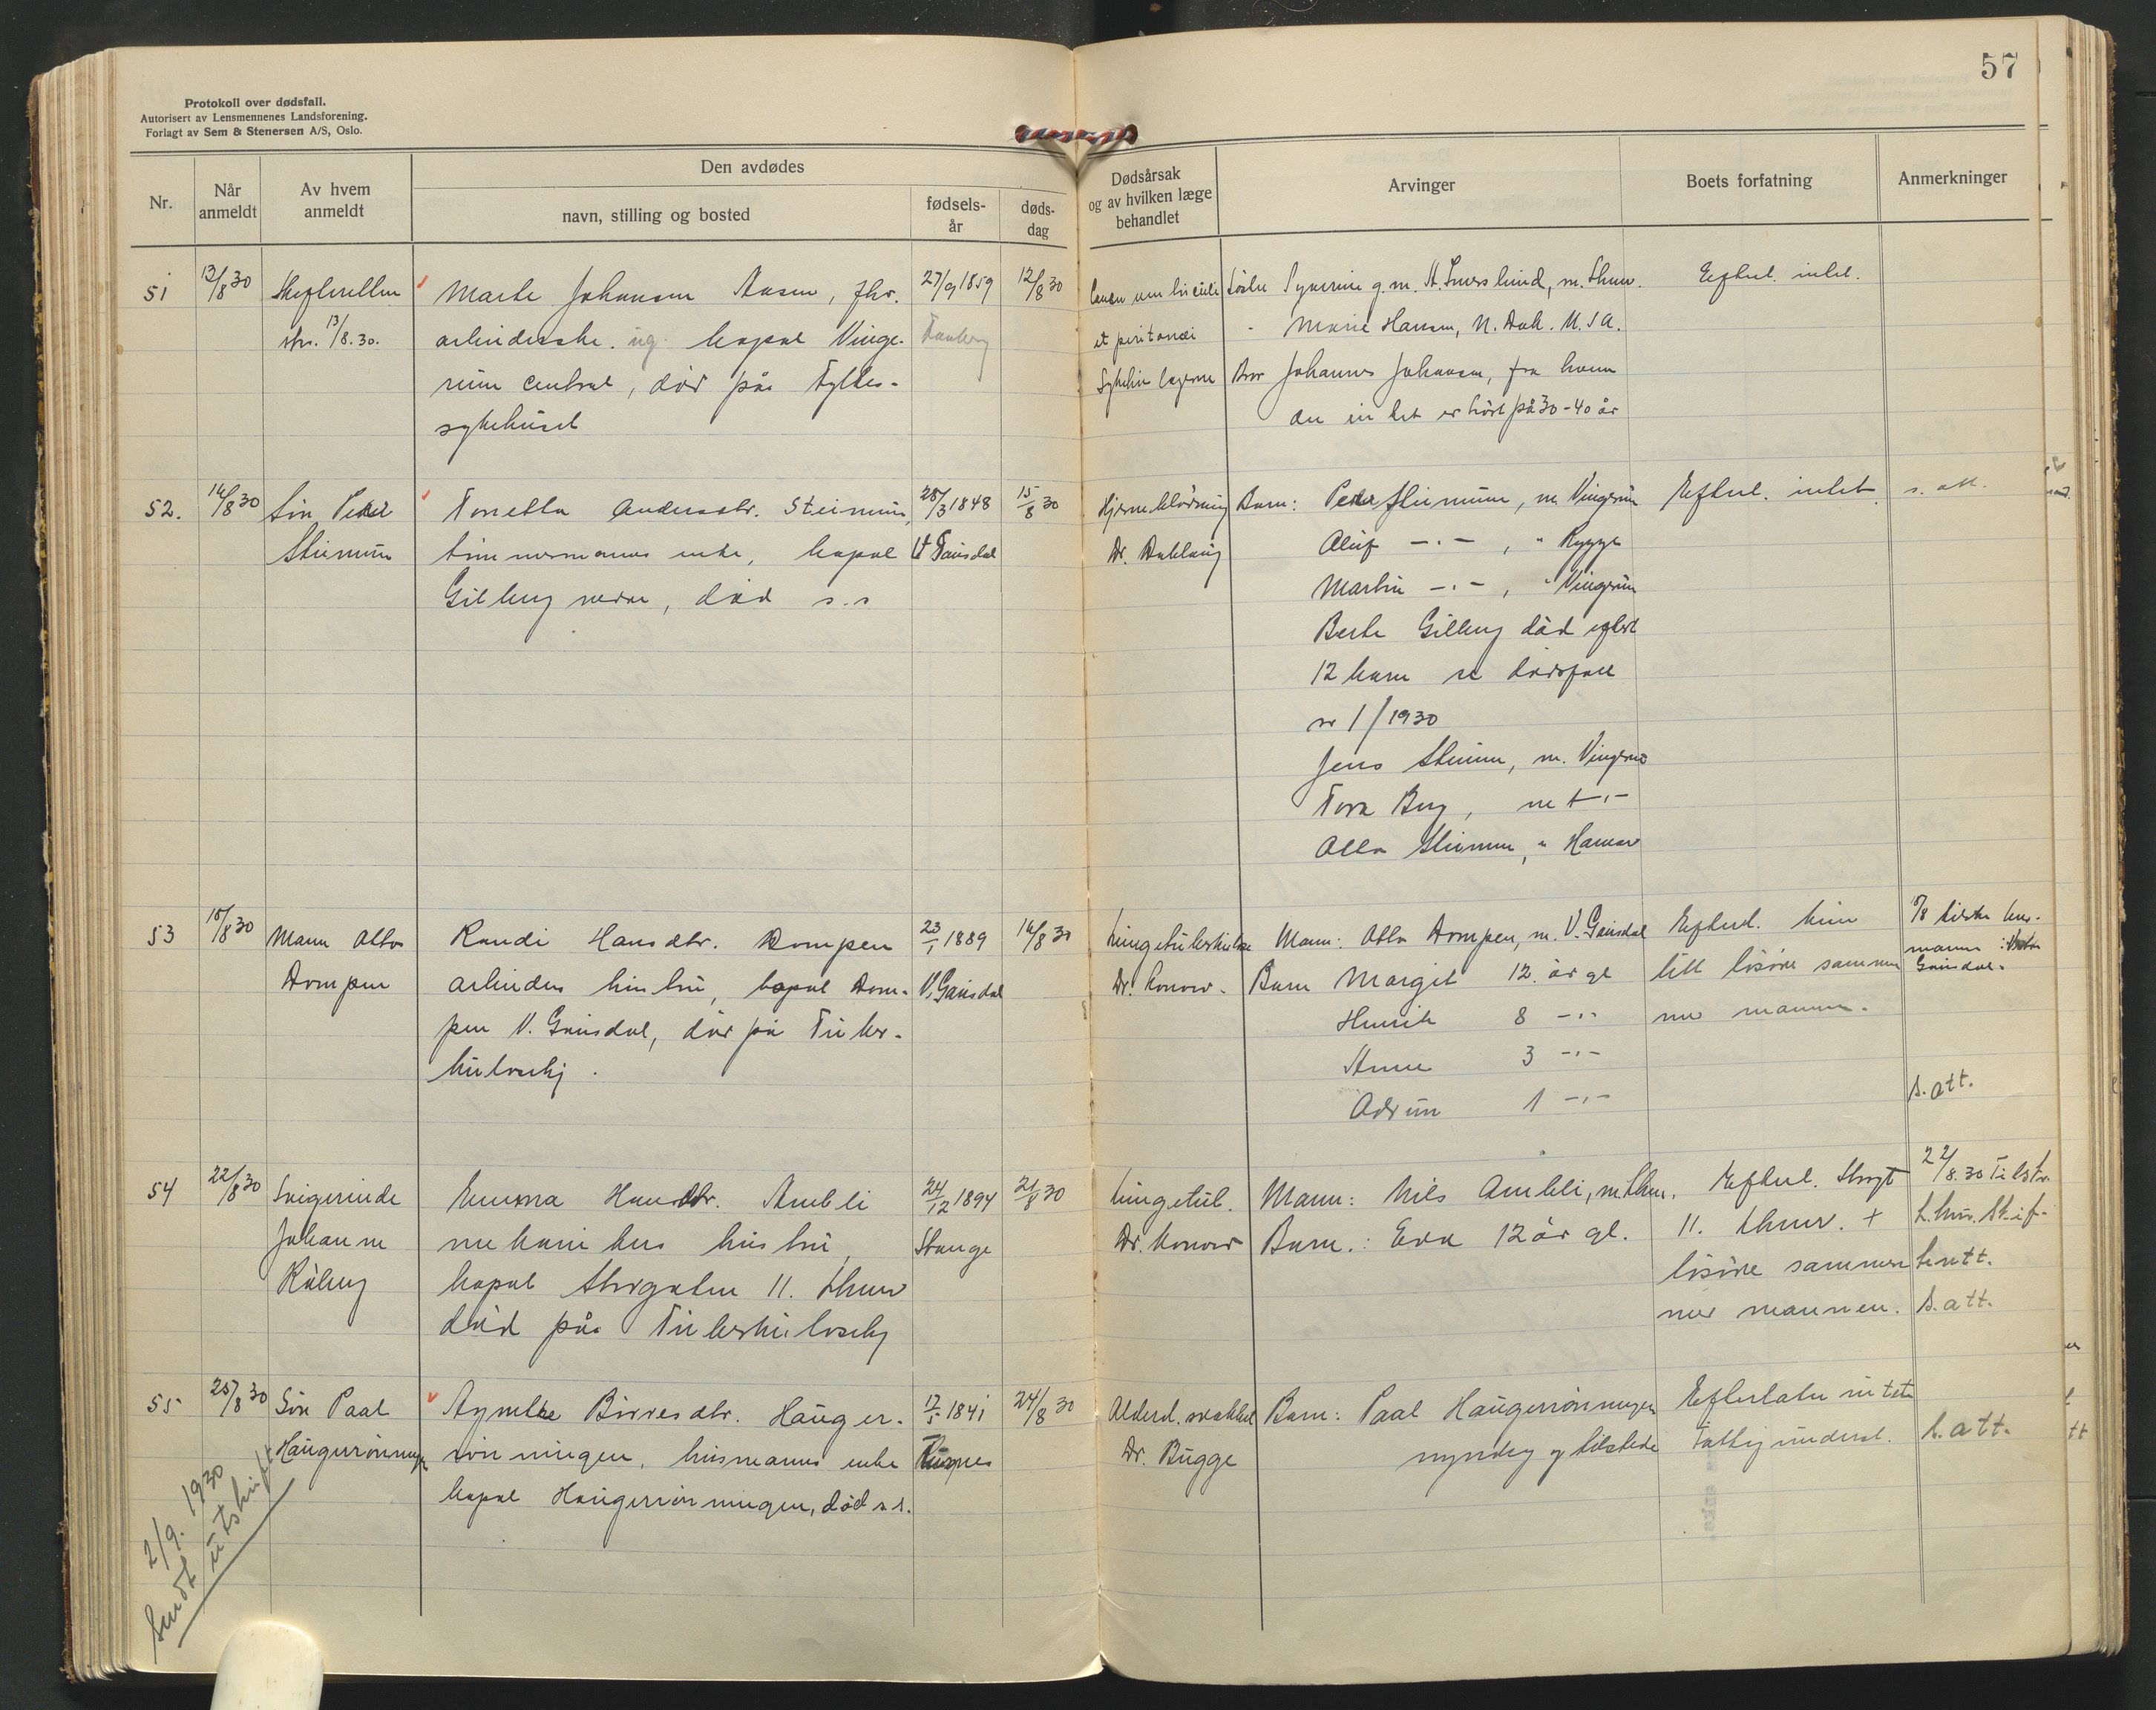 57
Protokoll over dødsfall.
Autorisert av Lensmennenes Landsforening.
Forlagt av Sem & Stenersen A/S, Oslo.
Nr.
Når anmeldt
Av hvem anmeldt
Den avdødes
navn, stilling og bosted
fødsels-år
døds-dag
Dødsårsak og av hvilken læge behandlet
Arvinger
Boets forfatning
Anmerkninger
51
13/8 30
13/8.30.
Marte Johansen Aasen, fhv.
arbeiderske. ug. bopæl Vinge-
rum central, død på Fylkes-
sykehuset
27/9 1859
Faaberg
12/8 30
et peritonei
m. Lhmr.
" Marie Hansen, N. Dak. U.S.A.
Bror Johannes Johansen, fra hvem
der intet er hørt på 30-40 år
Efterl. intet.
52.
16/8 30
Søn Peder
Steinmun
Tonetta Andersdtr. Steinmun,
timmermanns enke, bopæl
Gilberg nedre, død s.s
28/3 1848
V Gausdal
15/8 30
Hjerneblødning
Barn: Peder Steinmun, m. Vingrom
Oluf -"- , " Rygge
Martin -"- , " Vingrom
Berte Gilberg død efterl
12 barn se dødsfall
nr 1/1930
Jens Steinmun, m. Vingrom
Tora Berg, m -"-
Otto Steinmun, " Hamar
Efterl. intet
s. att.
53
18/8 30
Mann Otto
Dompen
Randi Hansdtr. Dompen
arbeiders hustru, bopæl Dom-
pen V. Gausdal, død på Tuber-
kulosehj.
23/1 1889
V. Gausdal
16/8 30
Lungetuberkulose
Dr. Konow.
Mann: Otto Dompen, m. V. Gausdal
Barn Margit 12 år gl
Henrik 8 -"-
Anne 3 -"-
Odrun 1 -"-
Efterl. kun
litt løsøre sammen
med mannen.
Gausdal.
s. att.
54
22/8 30
Svigerinde
Johanne
Råberg
Emma Hansdtr. Ambli
mekanikers hustru,
bopæl Storgaten 11. Lhmr
død på Tuberkulosehj
24/12 1894
Stange
21/8 30
Lungetub.
Dr. Konow
Mann: Nils Ambli, m. Lhmr.
Barn.: Eva 12 år gl.
Efterl. Storgt
11. Lhmr. +
løsøre sammen
med mannen.
22/8.30 Tilstr.
s. att.
55
25/8 30
Søn Paal
Haugerrønningen
Agnethe Børresdtr. Hauger-
rønningen, husmanns enke
bopæl Haugerrønningen, død s.s.
12/5 1841
24/8 30
Alderd. svakhet
Dr. Bugge
Barn: Paal Haugerrønningen
myndig og tilstede
Efterlater intet
Fattigunderst.
s. att.
2/9. 1930
Sendt utskrift